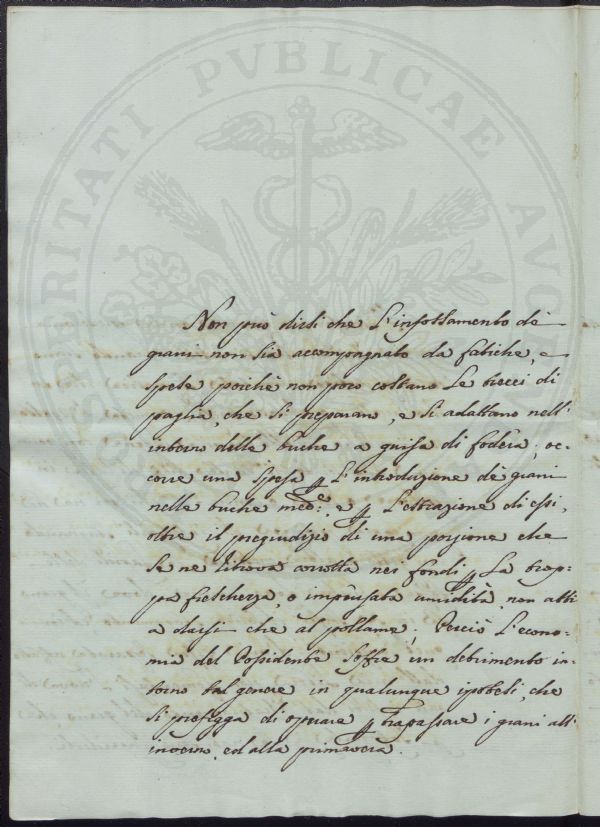 PROSPERITATI PVBLICAE AVGENDAE
Non può dirsi che l'infossamento de
grani non sia accompagnato da fatiche, e
spese poichè non poco costano le trecci di
paglia, che si preparano, e si adattano nell'
interno delle buche a guisa di fodera; oc-
corre una spesa p l'introduzione de grani
nelle buche med:e, e p l'estrazione di essi,
oltre il pregiudizio di una porzione che
se ne ritrova corrotta nei fondi p la trop-
pa freschezza, o impensata umidità, non atti
a darsi che al pollame; Perciò l'econo-
mia del Possidente soffre un detrimento in-
torno tal genere in qualunque ipotesi, che
si prefigga di operare p trapassare i grani all'
inverno, ed alla primavera.